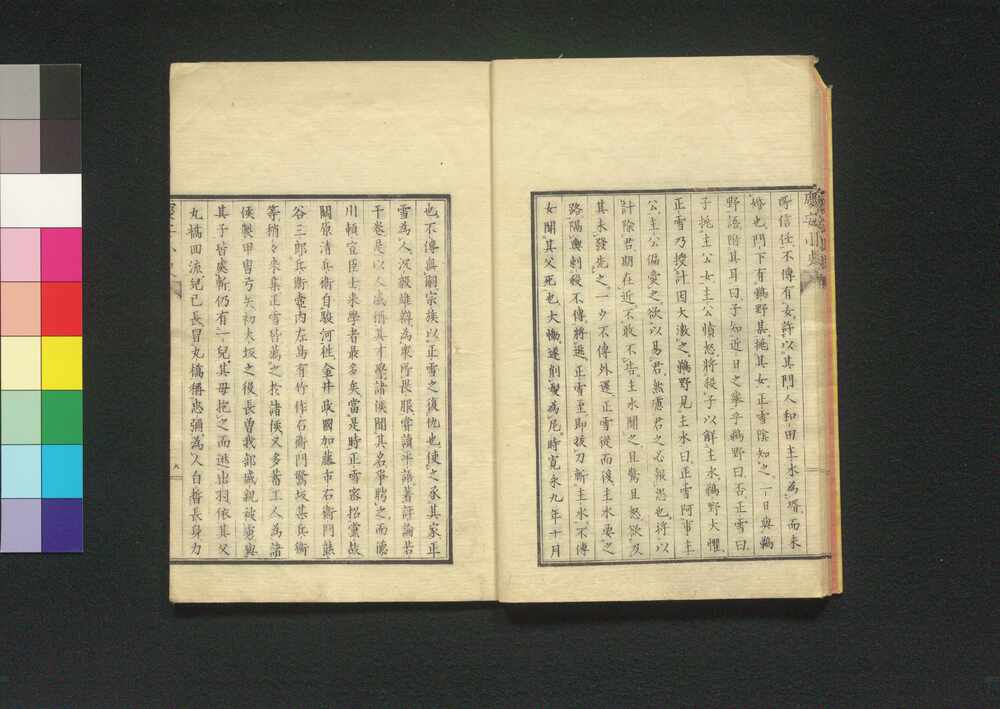 所信任不傳有女許以其門人和田主水為壻而未
婚也門下有鵜野某挑其女正雪陰知之一日與鵜
野語附其耳曰子知近日之事乎鵜野曰否正雪曰
子挑主公女主公憤怒將殺子以鮮主水鵜野大懼
正雪乃授計因大激之鵜野見主水曰正雪阿事主
公主公偏愛之欲以易君然慮君之必報怨也將以
計除君期在近不敢不告主水聞之且驚且怒欲及
其未發先之一夕不傳外還正雪從而後主水要之
路隅輿刺殺不傳將逃正雪至即拔刀斬主水不傳
女聞其父死也大慟遂削髮為尼時寛永九年十月
也不傳無嗣宗族以正雪之復仇也使之承其家正
雪為人沉毅雄辯為衆所畏服嘗讀平語著評論若
干卷是以人咸稱其才學諸侯聞其名爭聘之而德
川頼宣臣士來學者最多矣當是時正雪密招黨故
關原清兵衛自駿河徃金井政國加藤市右衛門熊
谷三郎兵衛堂内左馬有竹作右衛門鷲坂甚兵衛
等稍々來集正雪皆薦之於諸侯又多蓄工人為諸
侯製甲冑弓矢初大坂之後長曽我部盛親被虜與
其子皆處斬仍有一兒其母抱之而逃出羽依其父
丸橋田流兒已長冒丸橋稱忠彌為人白皙長身力